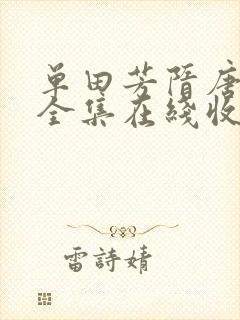 单田芳隋唐
全集在线收
雷詩婧